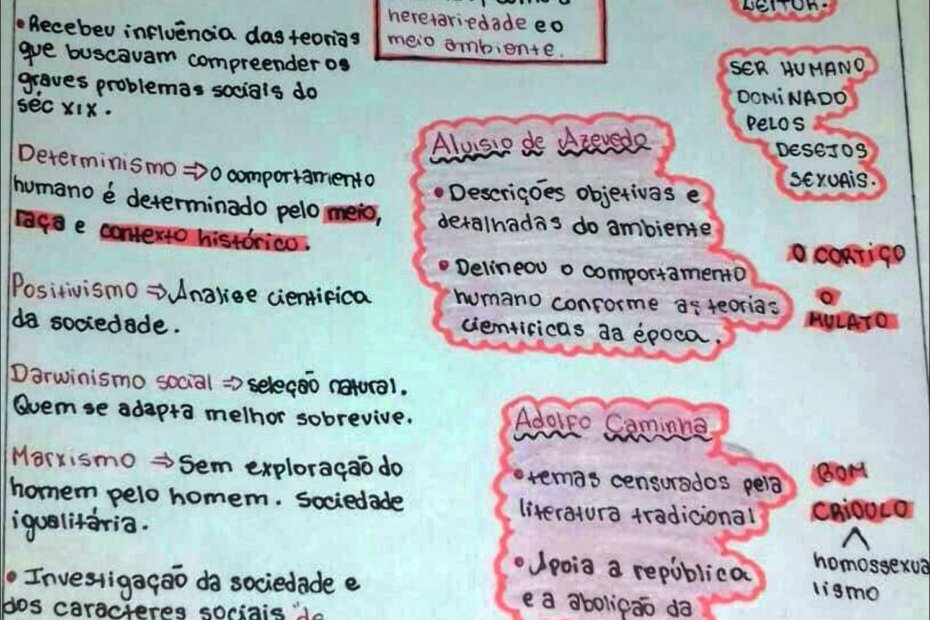 heretariedade e o
meio ambiente.
LEITOR.
• Recebeu influência das teorias
que buscavam compreender os
graves problemas sociais do
séc XIX.
Determinismo ⇒ o comportamento
humano é determinado pelo meio,
raça e contexto histórico.
Positivismo ⇒ Analise cientifica
da sociedade.
Darwinismo social ⇒ seleção natural.
Quem se adapta melhor sobrevive.
Marxismo ⇒ Sem exploração do
homem pelo homem. Sociedade
igualitária.
• Investigação da sociedade e
dos caracteres sociais "de
SER HUMANO
DOMINADO
PELOS
DESEJOS
SEXUAIS.
Aluisio de Azevedo
• Descrições objetivas e
detalhadas do ambiente
• Delineou o comportamento
humano conforme as teorias
cientificas da época.
O CORTIÇO
O
MULATO
Adolfo Caminha
• temas censurados pela
literatura tradicional
• Apoia a república
e a abolição da
BOM
CRIOULO
homossexua
lismo